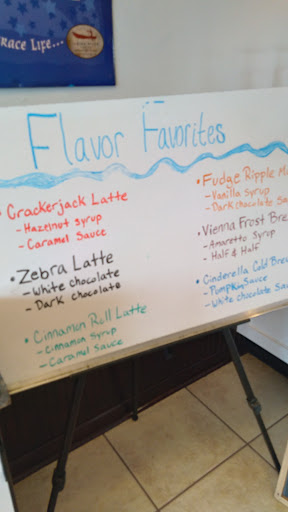 race Life...
Flavor Favorites
• Crackerjack Latte
- Hazelnut syrup
- Caramel Sauce
• Zebra Latte
- White chocolate
- Dark chocolate
• Cinnamon Roll Latte
- Cinnamon Syrup
- Caramel Sauce
• Fudge Ripple M
- Vanilla Syrup
- Dark chocolate Sa
• Vienna Frost Bre
- Amaretto Syrup
- Half & Half
• Cinderella Cold Brew
- Pumpkin Sauce
- White chocolate Sau